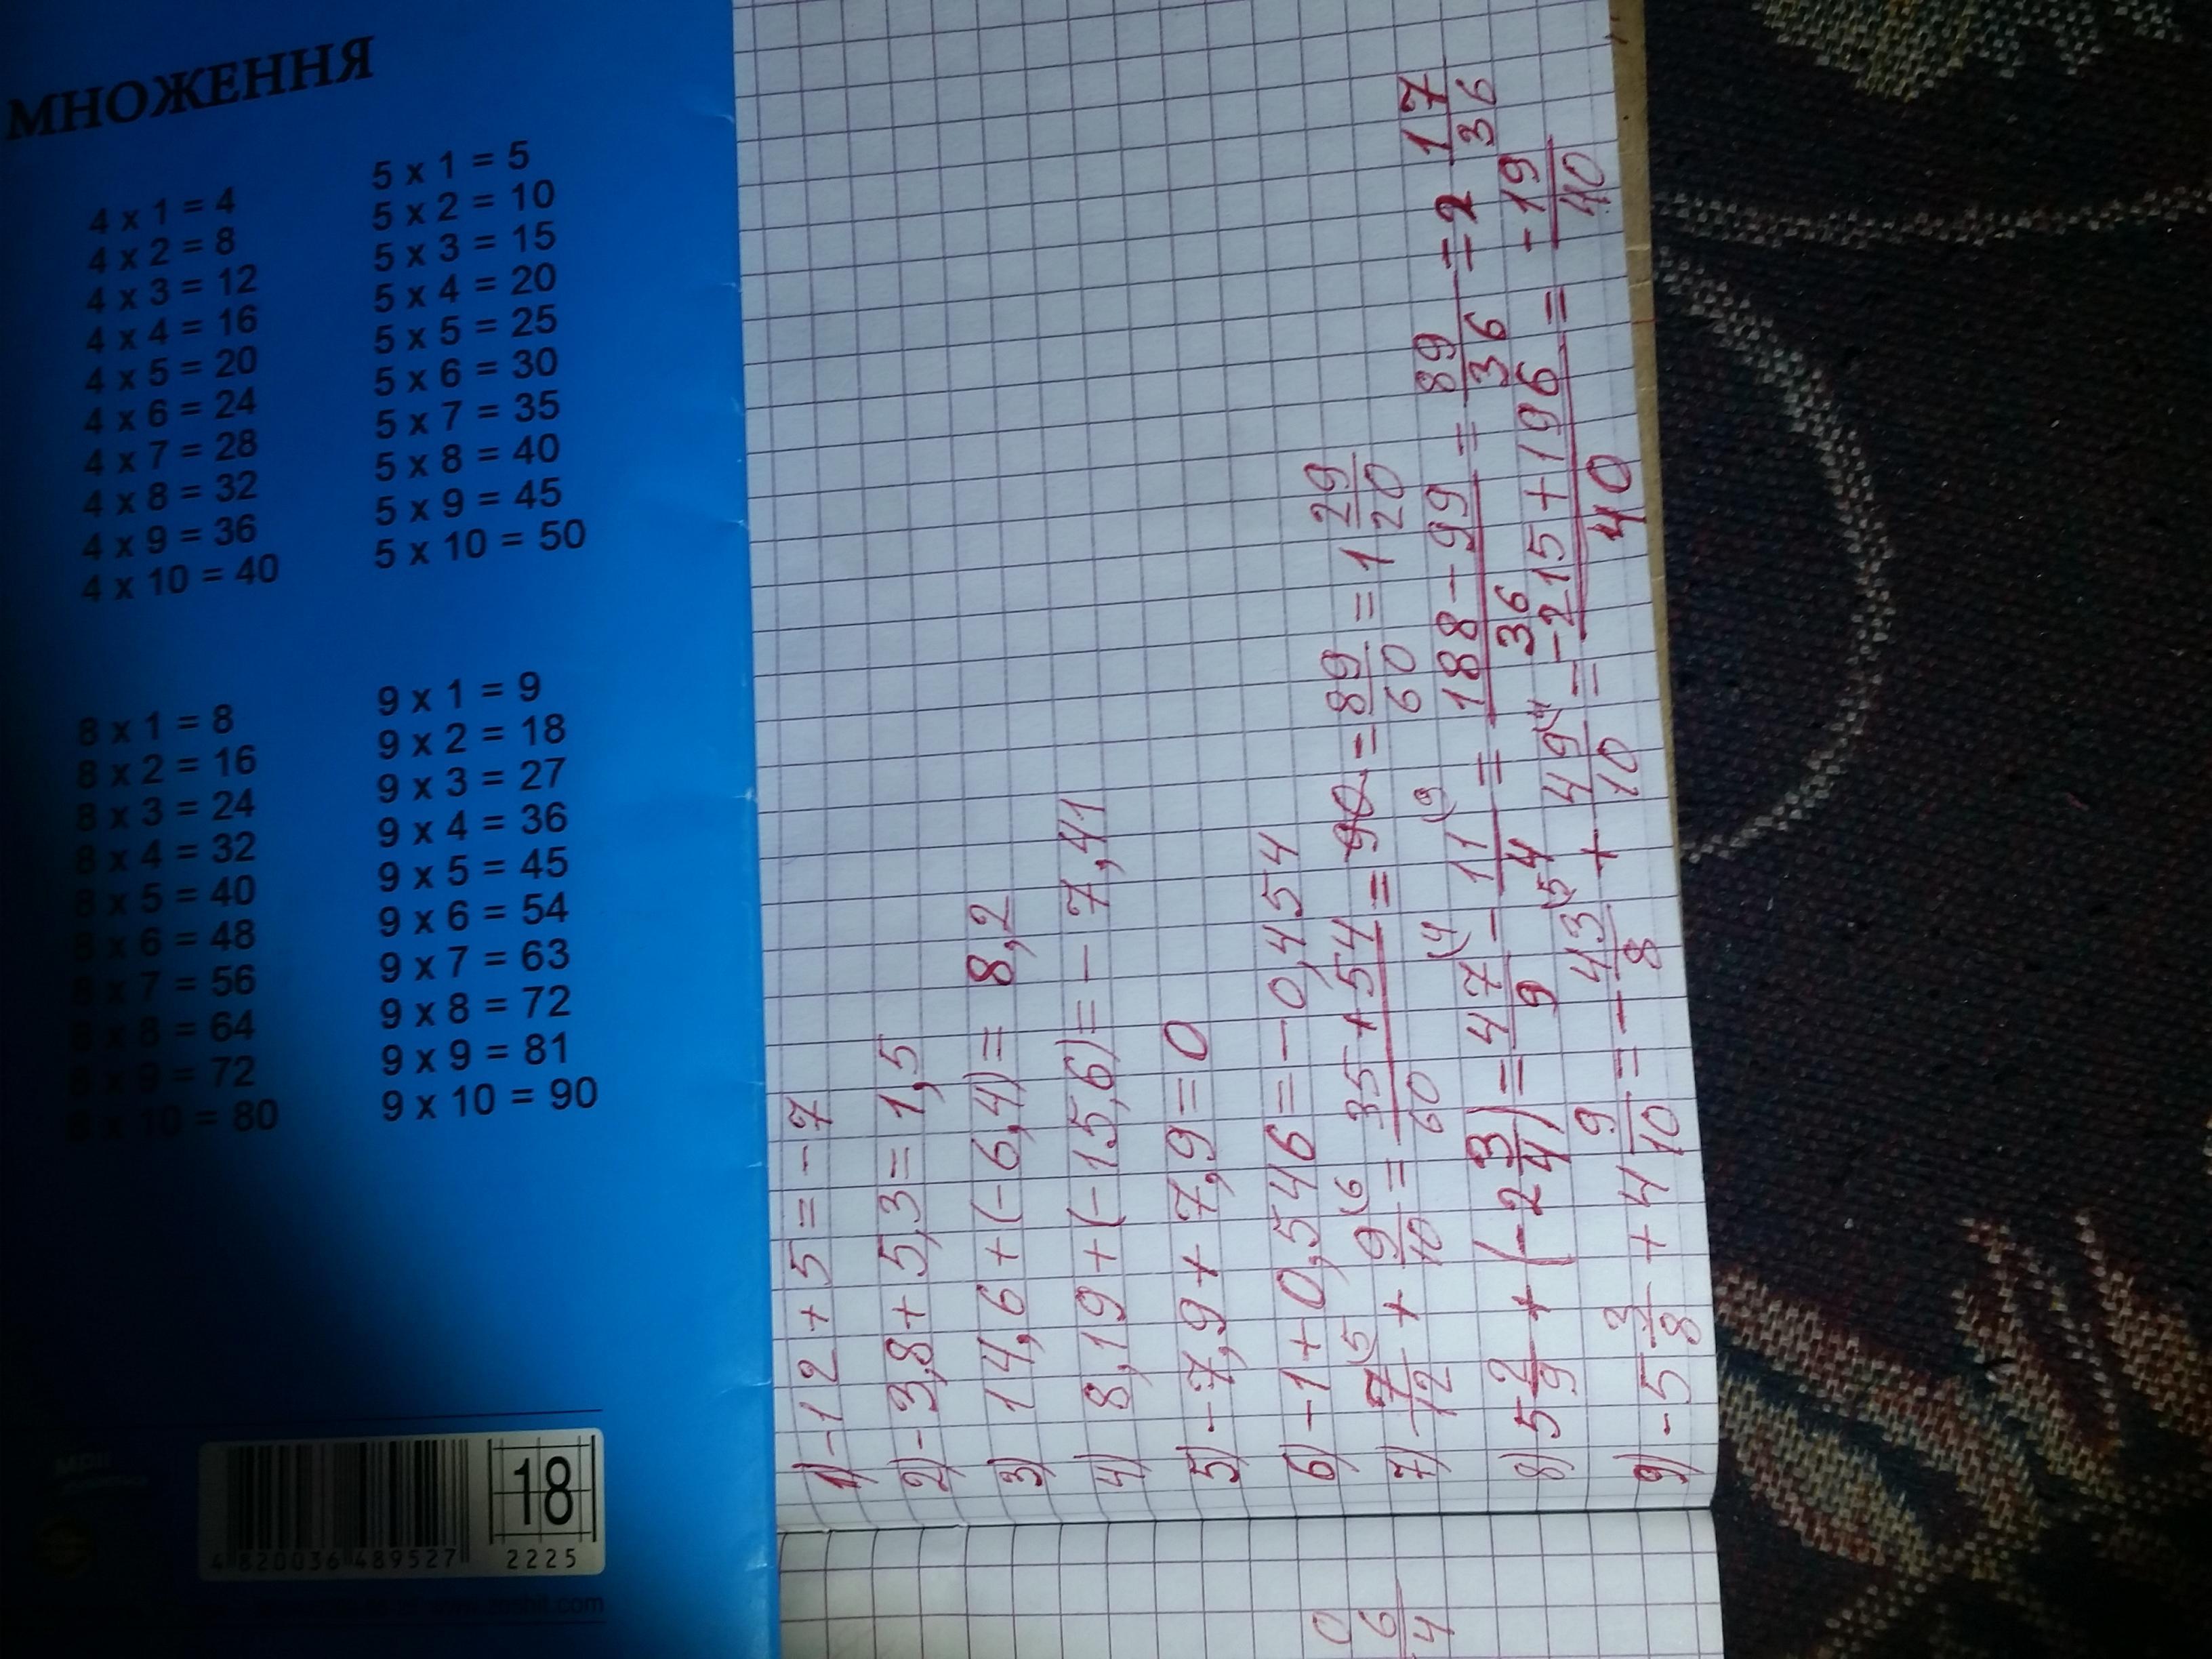 МНОЖЕННЯ
4 x 1 = 4
4 x 2 = 8
4 x 3 = 12
4 x 4 = 16
4 x 5 = 20
4 x 6 = 24
4 x 7 = 28
4 x 8 = 32
4 x 9 = 36
4 x 10 = 40
5 x 1 = 5
5 x 2 = 10
5 x 3 = 15
5 x 4 = 20
5 x 5 = 25
5 x 6 = 30
5 x 7 = 35
5 x 8 = 40
5 x 9 = 45
5 x 10 = 50
8 x 1 = 8
8 x 2 = 16
8 x 3 = 24
8 x 4 = 32
8 x 5 = 40
8 x 6 = 48
8 x 7 = 56
8 x 8 = 64
8 x 9 = 72
8 x 10 = 80
9 x 1 = 9
9 x 2 = 18
9 x 3 = 27
9 x 4 = 36
9 x 5 = 45
9 x 6 = 54
9 x 7 = 63
9 x 8 = 72
9 x 9 = 81
9 x 10 = 90
18
4 820036 489527
2225
1) -12 + 5 = -7
2) -3,8 + 5,3 = 1,5
3) 14,6 + (-6,4) = 8,2
4) 8,19 + (-15,6) = -7,41
5) -7,9 + 7,9 = 0
6) -1 + 0,546 = -0,454
7) -7/12 (5 + 9/10 (6 = 35 + 54/60 = = 89/60 = 1 29/20
8) 5 2/9 + (-2 3/4) = 47/9 (4 - 11/4 (9 = 188 - 99/36 = 89/36 = 2 17/36
9) -5 3/8 + 4 9/10 = -43/8 (5 + 49/10 (4 = -215 + 196/40 = -19/40
0
6
4